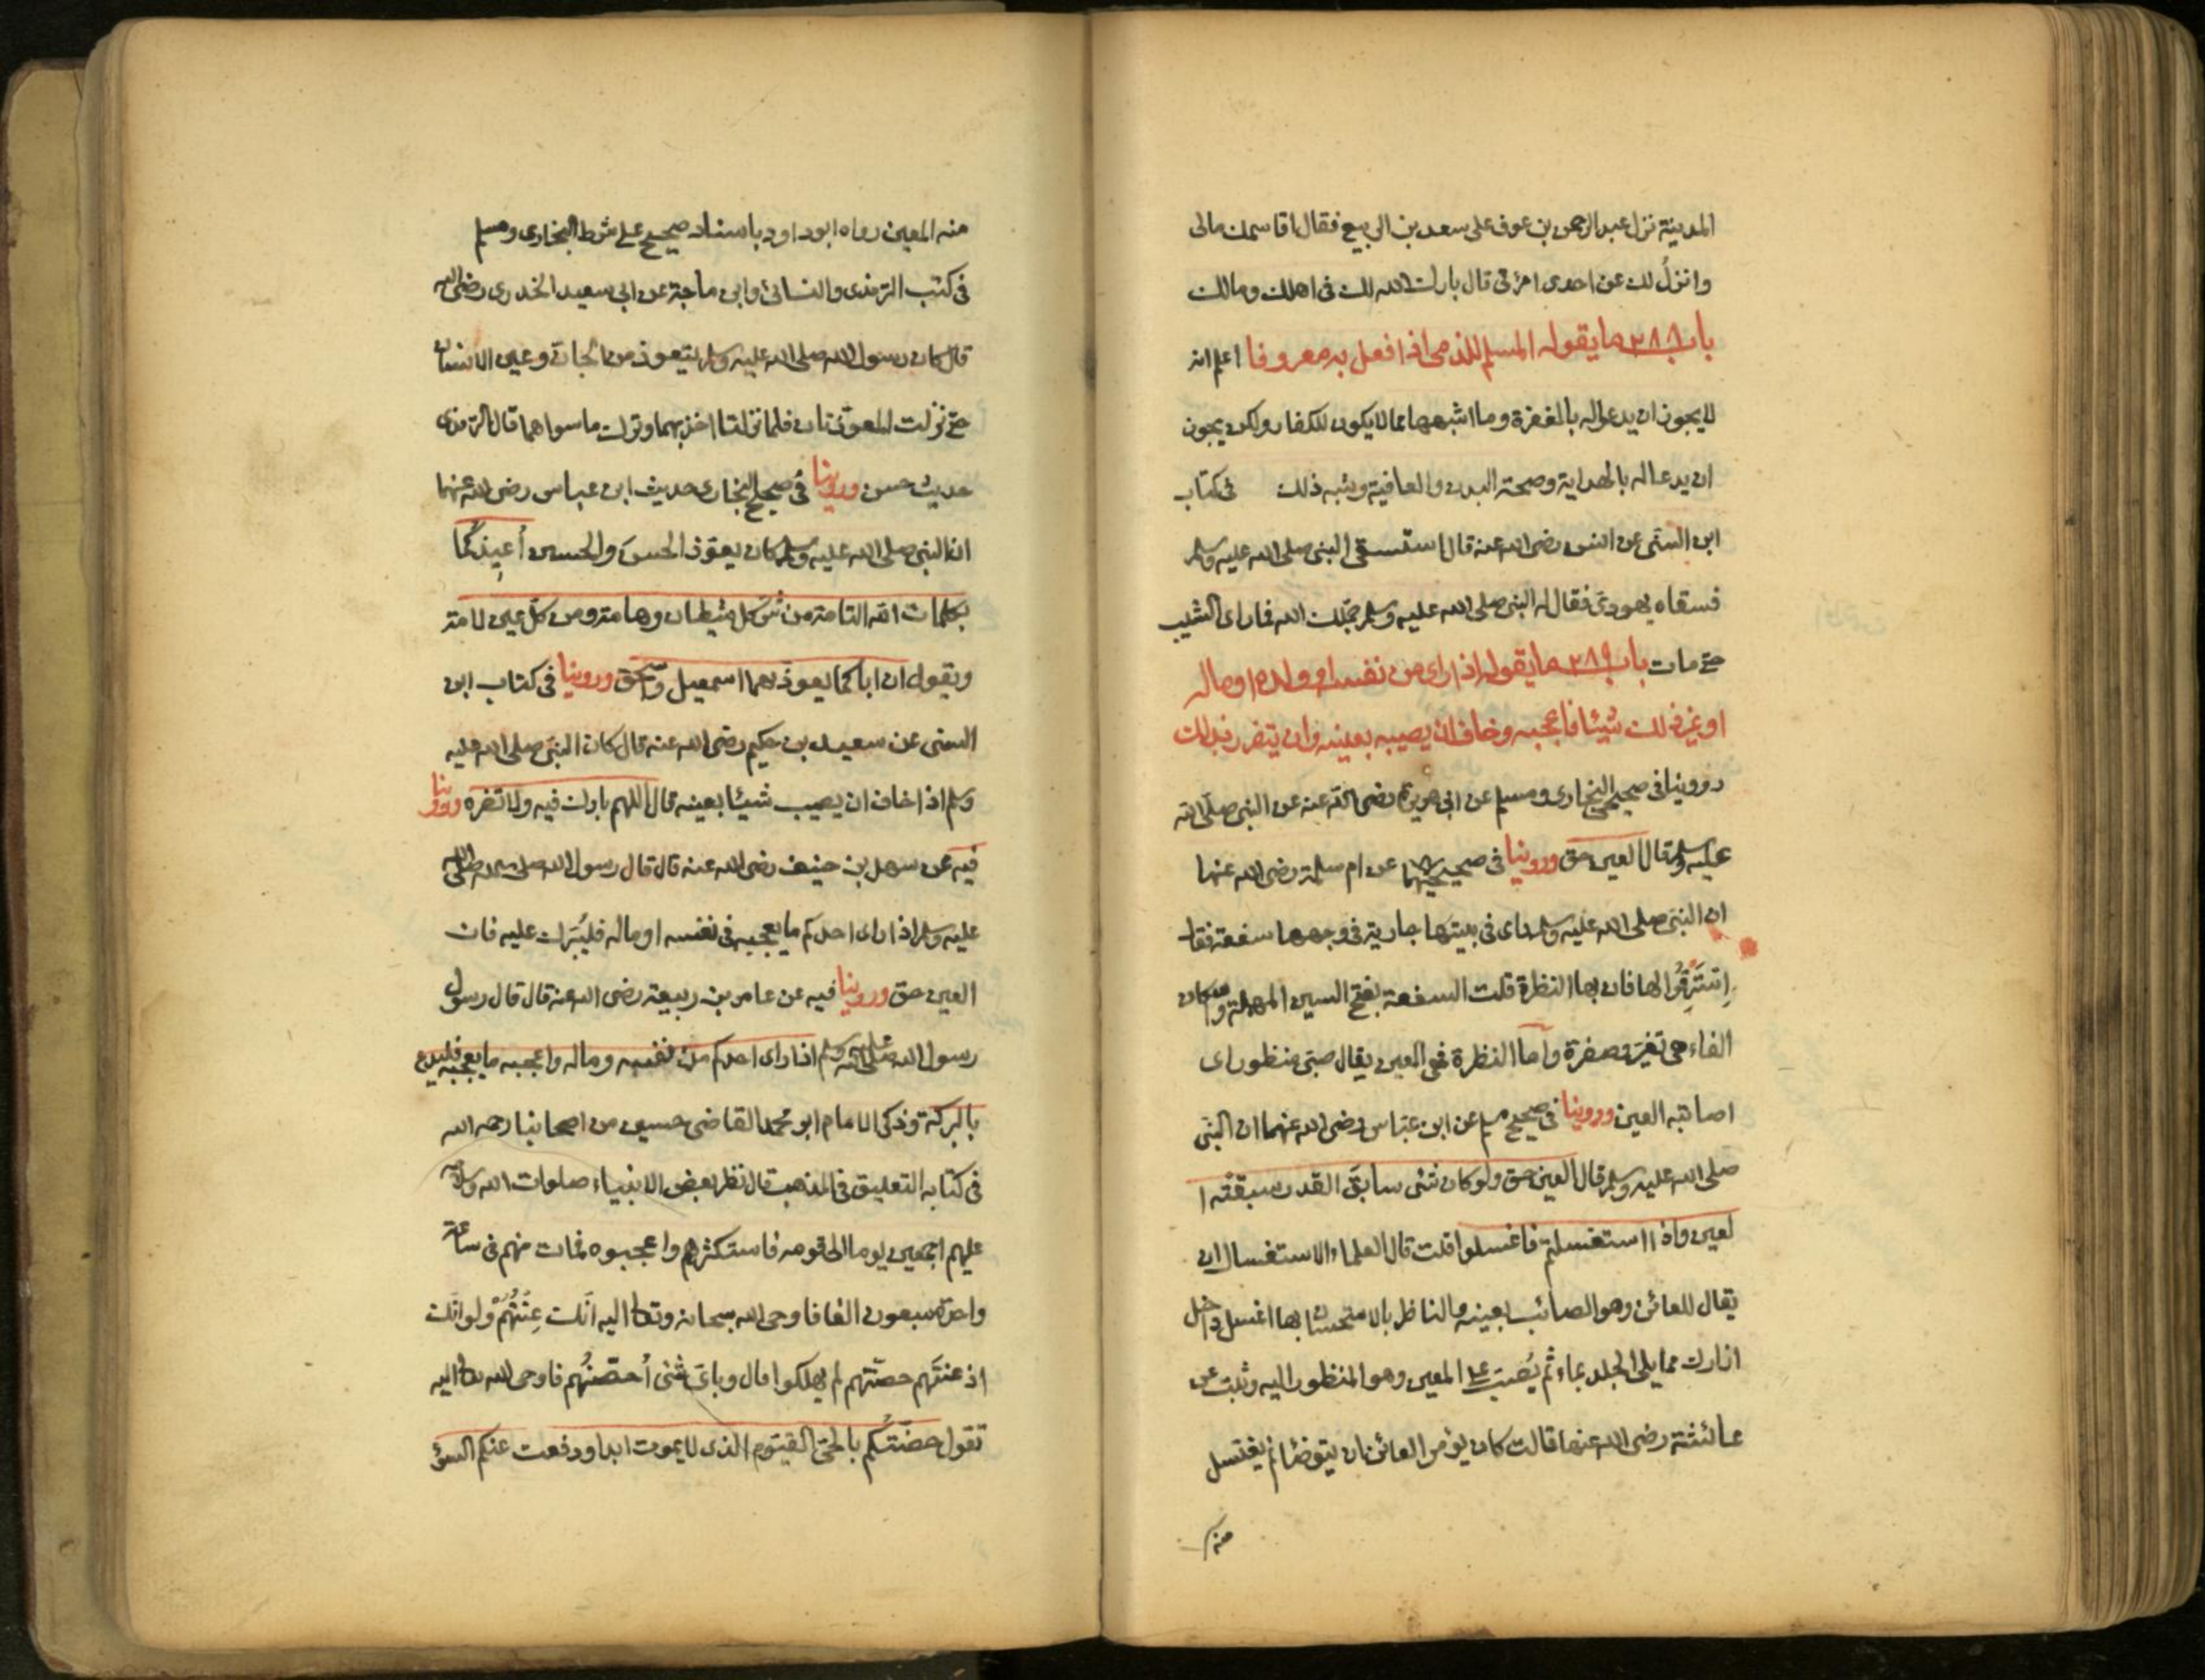 المدينة نزل عبد الرحمن بن عوف على سعد بن الربيع فقال اقاسمك مالى
وانزلُ لك عن احدى امرأتى قال بارك الله لك فى اهلك ومالك
باب ٢٨٨ ما يقوله المسلم للذمى اذا فعل به معروفا اعلم انه
لا يجوز ان يدعا له بالمغفرة وما اشبهها مما لا يكون للكفار ولكن يجوز
ان يدعا له بالهداية وصحة البدن والعافية وشبه ذلك فى كتاب
ابن السنى عن انس رضى الله عنه قال استسقى النبى صلى الله عليه وسلم
فسقاه يهودى فقال له النبى صلى الله عليه وسلم جمّلك الله فما راى الشيب
حتى مات باب ٢٨٩ ما يقوله اذا راى من نفسه او ولده او ماله
او غير ذلك شيئا فاعجبه وخاف ان يصيبه بعينه وان يتضرر بذلك
روينا فى صحيحى البخارى ومسلم عن ابى هريرة رضى الله عنه عن النبى صلى الله
عليه وسلم قال العين حق وروينا فى صحيحيهما عن ام سلمة رضى الله عنها
ان النبى صلى الله عليه وسلم راى فى بيتها جارية فى وجهها سفعة فقال
اِسْتَرِقُوا لها فان بها النظرة قلت السفعة بفتح السين المهملة واسكان
الفاء هى تغيّر وصفرة واما النظرة فهى العين يقال صبىّ منظور اى
اصابته العين وروينا فى صحيح مسلم عن ابن عبّاس رضى الله عنهما ان النبى
صلى الله عليه وسلم قال العين حق ولو كان شئ سابقَ القدر سبقته ا
لعين واذا استغسلتم فاغسلوا قلت قال العلماء الاستغسال ان
يقال للعائن وهو الصائب بعينه الناظر بالاستحسان بها اغسل داخل
ازارك مما يلى الجلد بماء ثم يُصَبّ على المعين وهو المنظور اليه وثبت عن
عائشة رضى الله عنها قالت كان يؤمر العائن ان يتوضأ ثم يغتسل
منه
منه المعين رواه ابو داود باسناد صحيح على شرط البخارى ومسلم
فى كتب الترمذى والنسائى وابن ماجة عن ابى سعيد الخدرى رضى الله
قال كان رسول الله صلى الله عليه وسلم يتعوذ من الجان وعين الانسان
حتى نزلت المعوّذتان فلما نزلتا اخذ بهما وترك ما سواهما قال الترمذى
حديث حسن وروينا فى صحيح البخارى حديث ابن عباس رضى الله عنهما
ان النبى صلى الله عليه وسلم كان يعوّذ الحسنَ والحسين أُعيذكُما
بكلمات الله التامة من شر كل شيطان وهامة ومن كل عين لامة
ويقول ان اباكما يعوذ بهما اسمعيل واسحق وروينا فى كتاب ابن
السنى عن سعيد بن حكيم رضى الله عنه قال كان النبى صلى الله عليه
وسلم اذا خاف ان يصيب شيئا بعينه قال اللهم بارك فيه ولا تضره وروينا
فيه عن سهل بن حنيف رضى الله عنه قال قال رسول الله صلى الله
عليه وسلم اذا راى احدكم ما يعجبه فى نفسه او ماله فليُبَرِّك عليه فان
العين حق وروينا فيه عن عامر بن ربيعة رضى الله عنه قال قال رسول
رسول الله صلى الله عليه وسلم اذا راى احدكم من نفسه وماله واعجبه ما يعجبه فليدع
بالبركة وذكر الامام ابو محمد القاضى حسين من اصحابنا رحمه الله
فى كتابه التعليق فى المذهب قال نظر بعض الانبياء صلوات الله وسلامه
عليهم اجمعين يوما الى قومه فاستكثرهم واعجبوه فمات منهم فى ساعة
واحدة سبعون الفا فاوحى الله سبحانه وتعالى اليه انّك عِنْتَهُمْ ولو انّك
اذ عنتَهم حصّنتهم لم يهلكوا قال وباىّ شئ اُحصّنُهم فاوحى الله تعالى اليه
تقول حصّنتُكم بالحىّ القيّوم الذى لا يموت ابدا ودفعت عنكم السوء